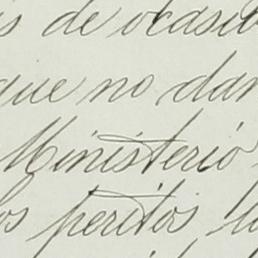 de ocasi
que no dan
Ministerio
los peritos, l